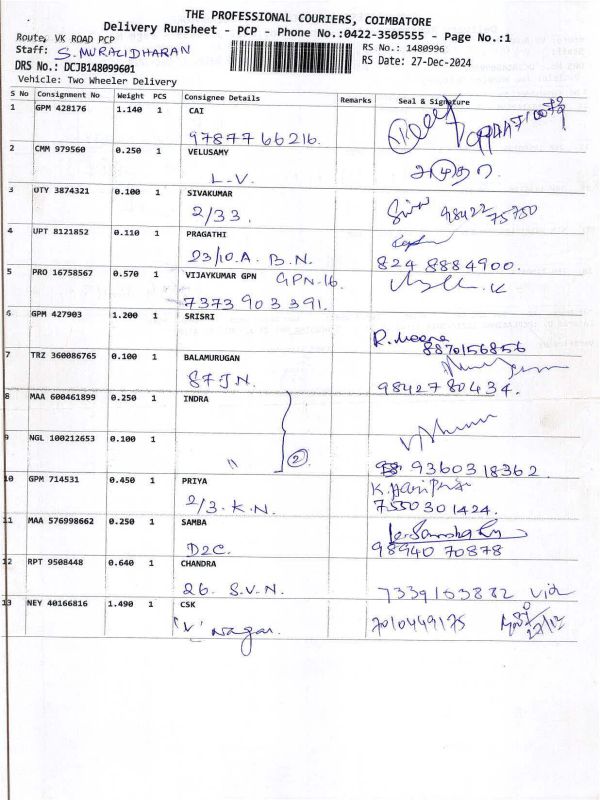 THE PROFESSIONAL COURIERS, COIMBATORE
Delivery Runsheet - PCP - Phone No.:0422-3505555 - Page No.:1
Route, VK ROAD PCP
Staff: S. MURALIDHARAN
RS No.: 1480996
DRS No.: DCJB148099601
RS Date: 27-Dec-2024
Vehicle: Two Wheeler Delivery
S No Consignment No Weight PCS Consignee Details Remarks Seal & Signature
1 GPM 428176 1.140 1 CAI
97877 66216.
2 CMM 979560 0.250 1 VELUSAMY
L-V.
3 OTY 3874321 0.100 1 SIVAKUMAR
2/33. 98422 75750
4 UPT 8121852 0.110 1 PRAGATHI
D3/10.A. B.N. 824 8884900.
5 PRO 16758567 0.570 1 VIJAYKUMAR GPN GPN-16.
7373 903 391.
6 GPM 427903 1.200 1 SRISRI
R. Meena
8870156856
7 TRZ 360086765 0.100 1 BALAMURUGAN
87-J N. 98427 80434.
8 MAA 600461899 0.250 1 INDRA
9 NGL 100212653 0.100 1
" 2 9360318362.
10 GPM 714531 0.450 1 PRIYA K. Hari Priya
2/3. K.N. 7550301424.
11 MAA 576998662 0.250 1 SAMBA
D2C. 98940 70878
12 RPT 9508448 0.640 1 CHANDRA
26. S.V.N. 7339163882
13 NEY 40166816 1.490 1 CSK 7010449175 27/12
"V" Nagar.